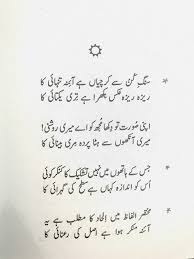 سنگِ تن سے کرچیاں ہے آئنہ تنہائی کا
ریزہ ریزہ عکس بکھرا ہے تری یکتائی کا
اپنی صورت تو دکھا مجھ کو اے میری روشنی!
میری آنکھوں سے ہٹا پردہ مری بینائی کا
جس کے ہاتھوں میں نہیں تشکیک کا کنکر کوئی
اُس کو اندازہ کہاں ہے سطح کی گہرائی کا
مختصر الفاظ میں الحاد کا مطلب ہے یہ
آئنہ منکر ہوا ہے اصل کی رعنائی کا